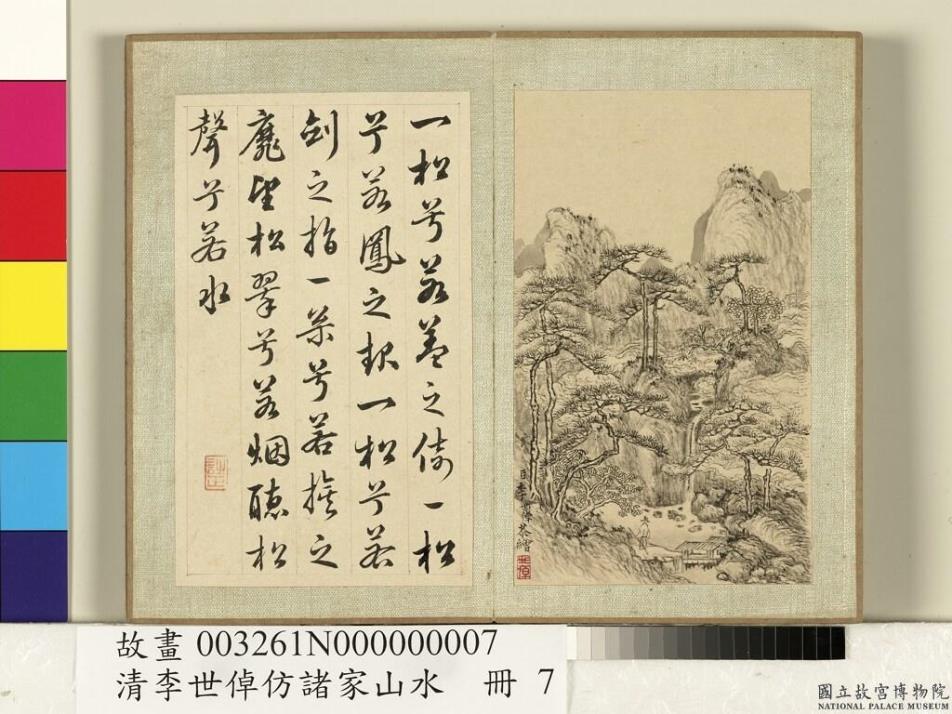 一松兮若蓋之倚一松
兮若鳳之一松兮若
劍之指一兮若之
麾望松翠兮若烟聽松
聲兮若水
臣李世倬恭繪
故畫 003261N000000007
清李世倬仿諸家山水 冊 7
國立故宮博物院
NATIONAL PALACE MUSEUM